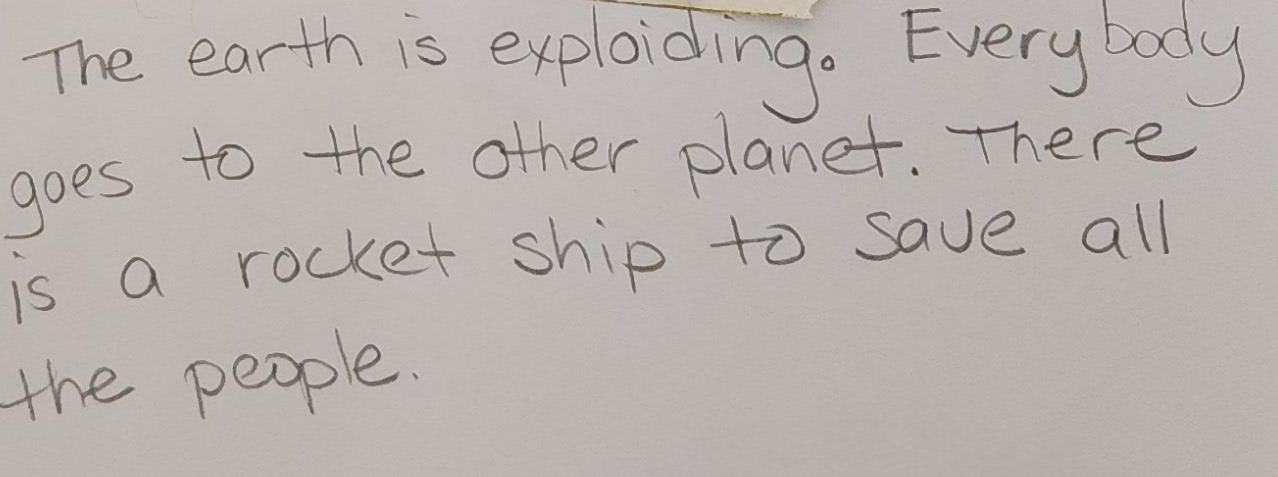 The earth is exploiding. Everybody
goes to the other planet. There
is a rocket ship to save all
the people.